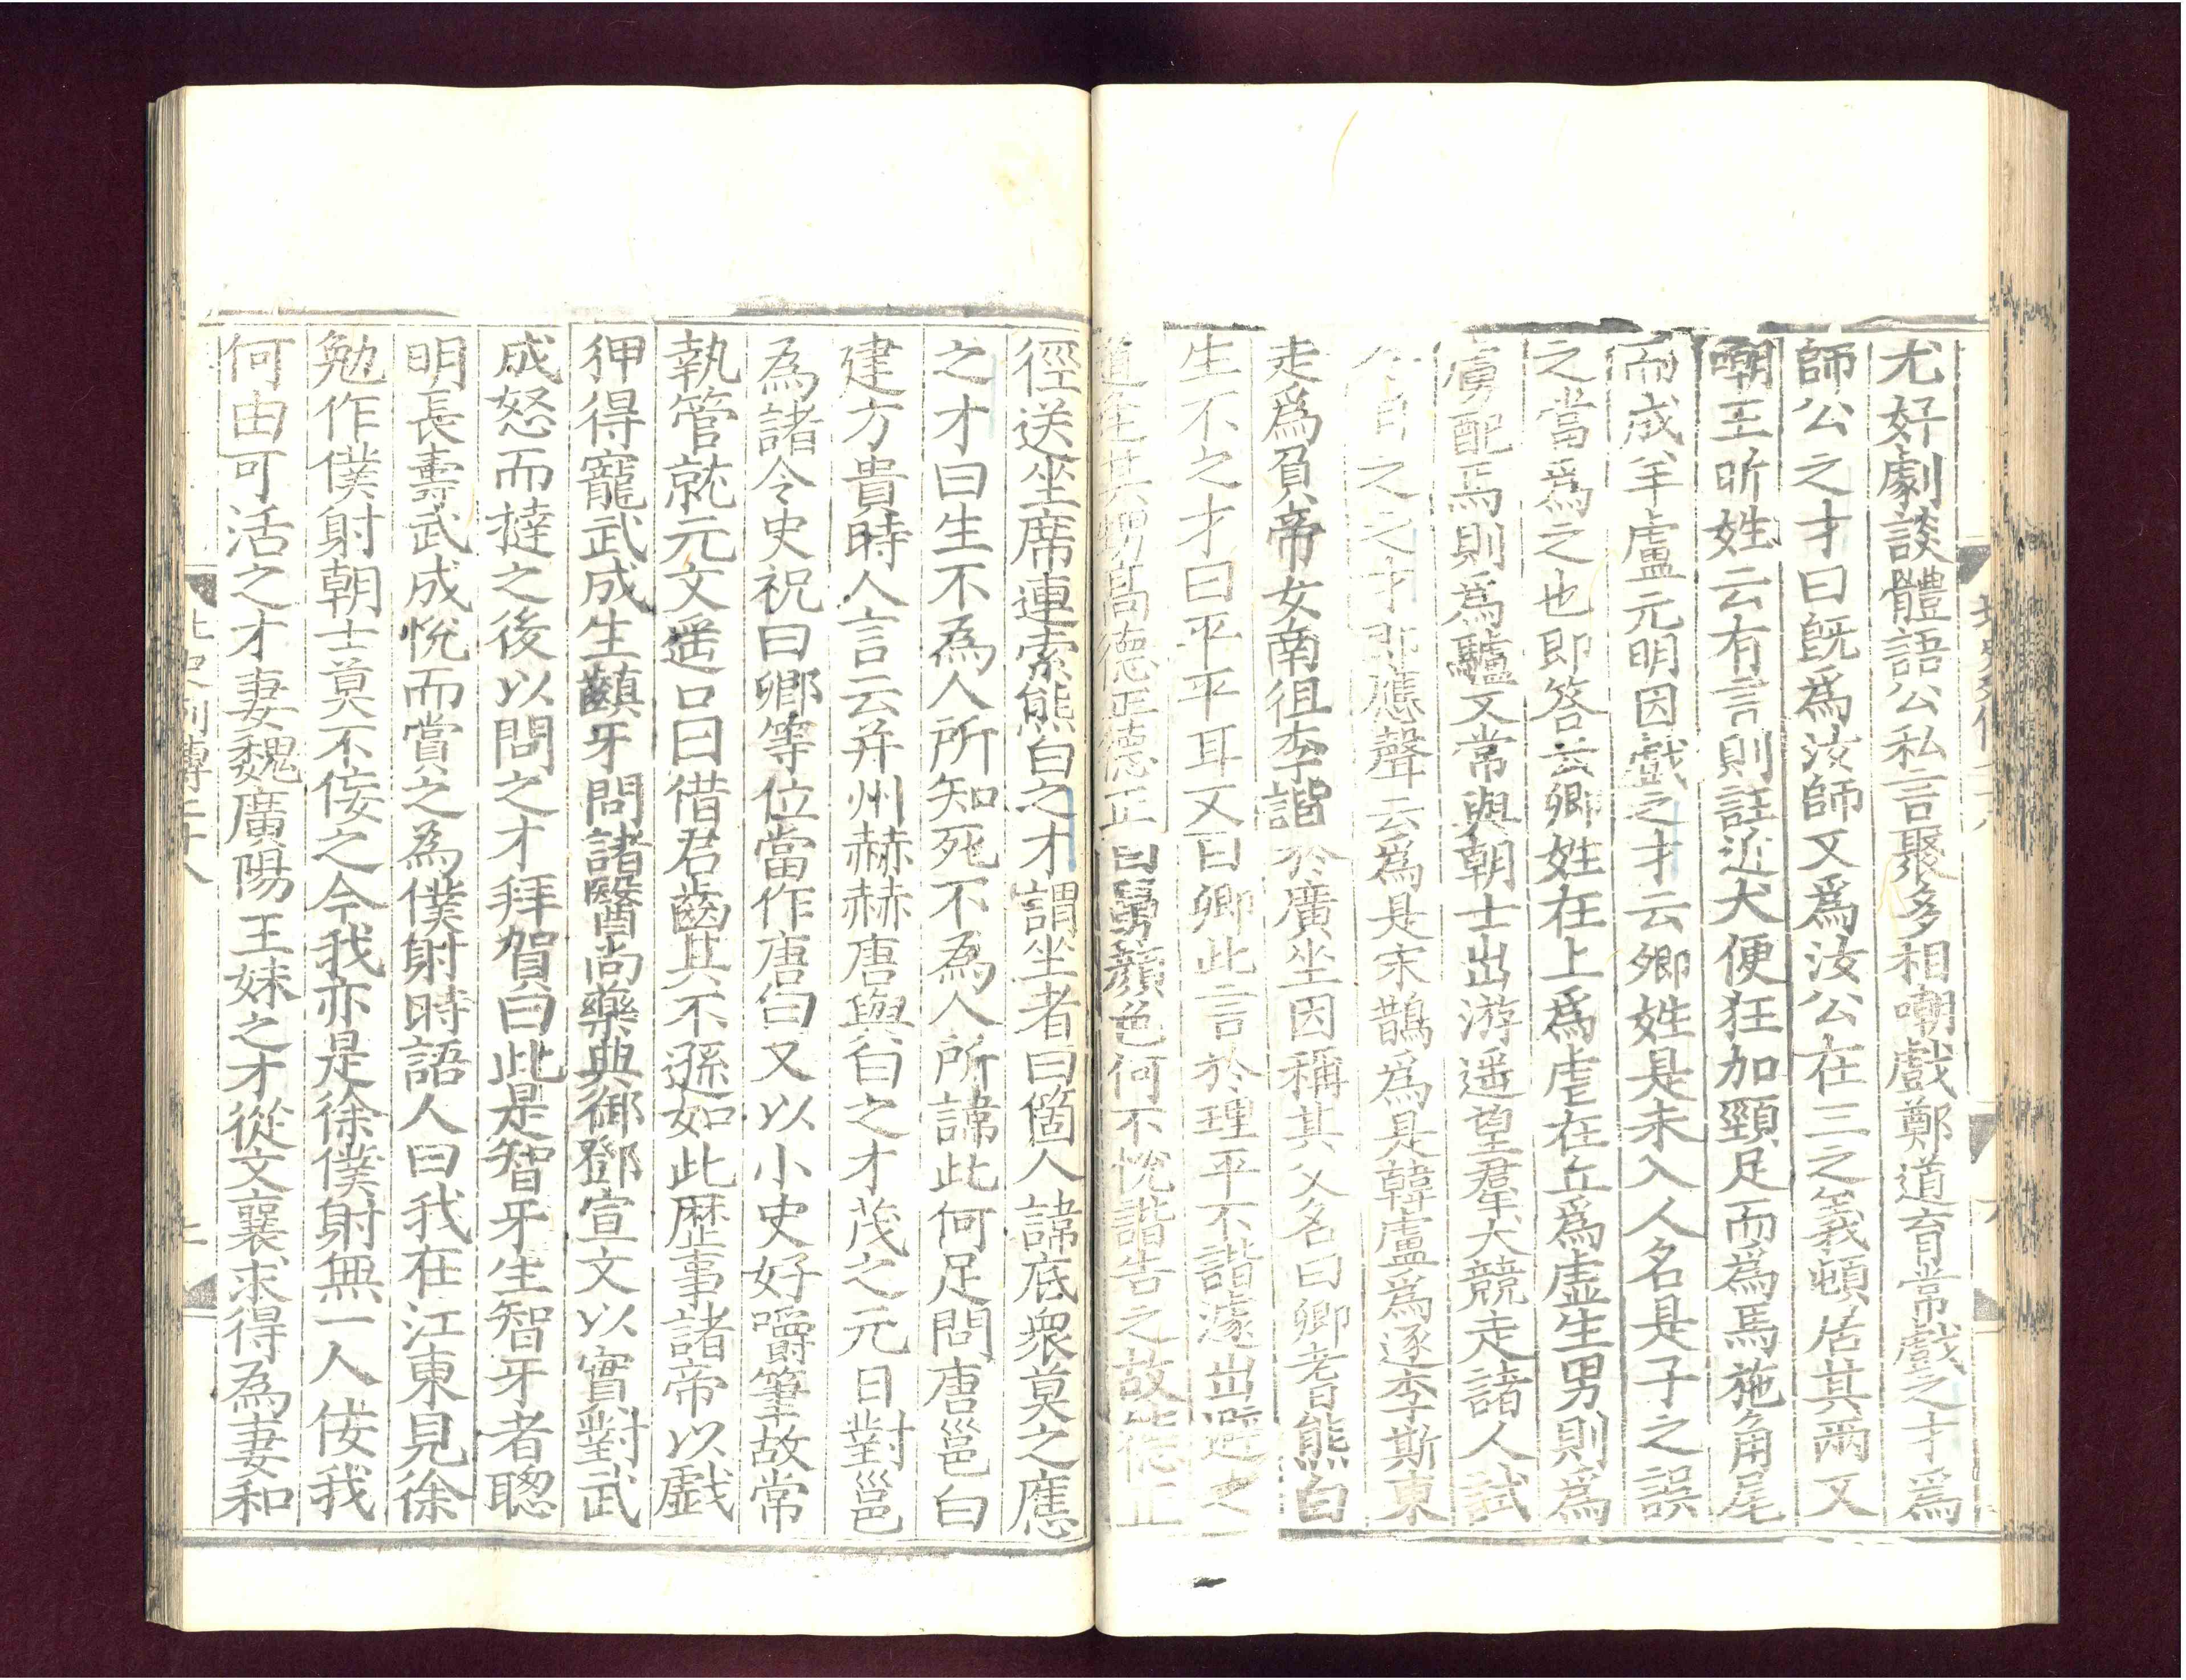 尤好劇談體語公私言聚多相嘲戲鄭道育常戲之才爲
師公之才曰旣爲汝師又爲汝公在三之義頓居其兩又
嘲王昕姓云有言則註近犬便狂加頸足而爲馬施角尾
而成羊盧元明因戲之才云卿姓是未入人名是子之誤
之當爲之也即答云卿姓在上爲虐在丘爲虛生男則爲
虜配馬則爲驢又常與朝士出游遥望羣犬競走諸人試
令目之之才即應聲云爲是宋鵲爲是韓盧爲逐李斯東
走爲負帝女南徂李諧於廣坐因稱其父名曰卿耆熊白
生不之才曰平平耳又曰卿此言於理平不諧遽出避之
道逢其甥高德正德正曰舅顏色何不恱諧告之故德正
徑送坐席連索熊白之才謂坐者曰箇人諱底衆莫之應
之才曰生不為人所知死不為人所諱此何足問唐邕白
建方貴時人言云并州赫赫唐與白之才茂之元日對邕
為諸令史祝曰卿等位當作唐白又以小史好嚼筆故常
執管就元文遥口曰借君齒其不遜如此歷事諸帝以戲
狎得寵武成生䶦牙問諸醫尚藥典御鄧宣文以實對武
成怒而撻之後以問之才拜賀曰此是智牙生智牙者聰
明長壽武成恱而賞之為僕射時語人曰我在江東見徐
勉作僕射朝士莫不佞之今我亦是徐僕射無一人佞我
何由可活之才妻魏廣陽王妹之才從文襄求得為妻和
北史列傳七十八